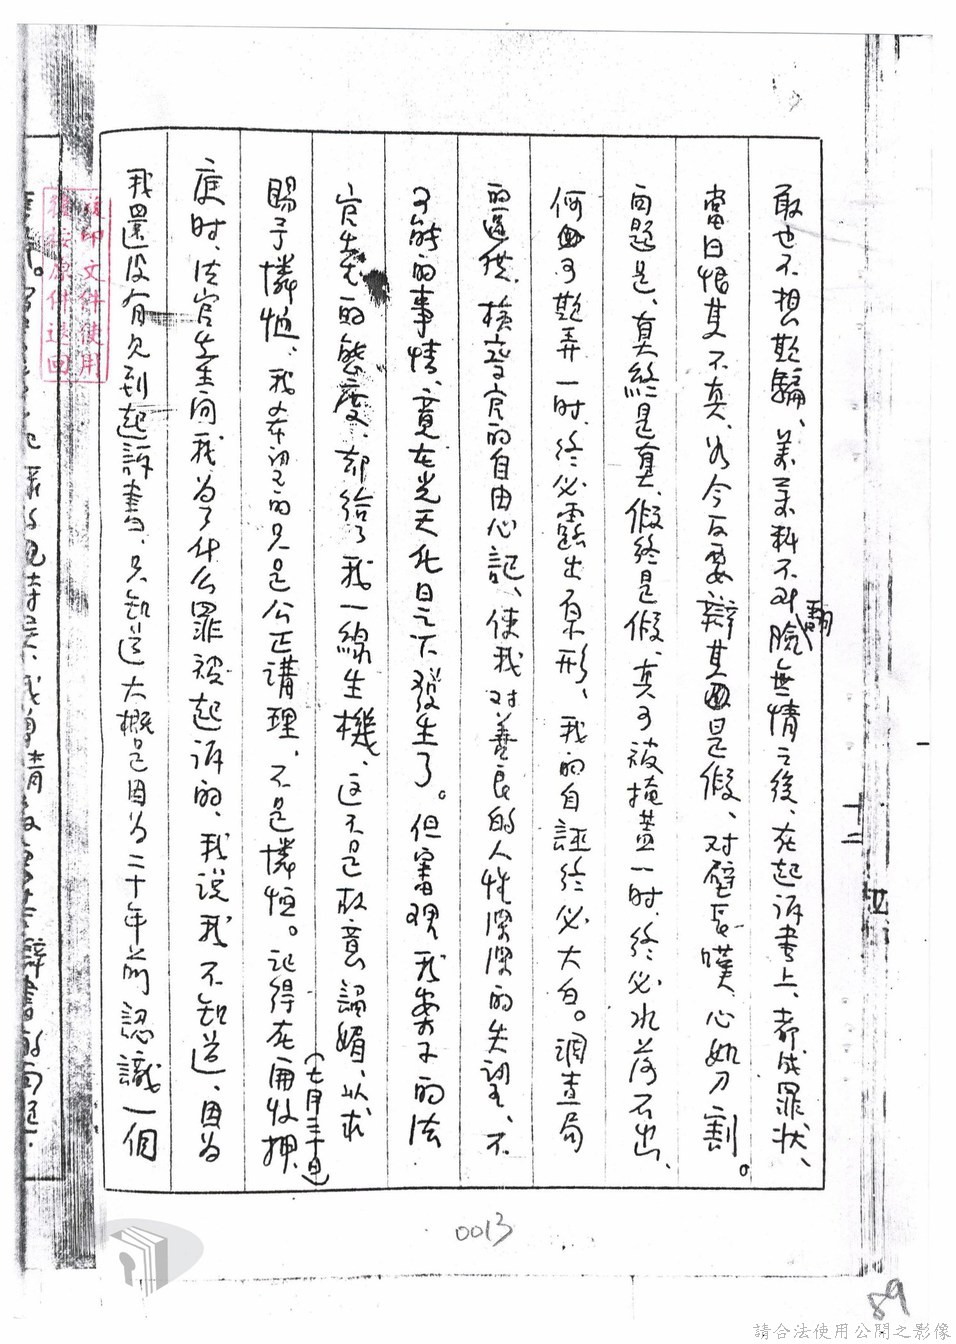 敢也不想欺騙、萬萬料不到翻臉無情之後、在起訴書上、都成罪狀、
當日恨其不真、如今反要辯其是假、对壁長嘆、心如刀割。
问題是、真終是真、假終是假、真可被掩蓋一时、終必水落石出、
何可欺弄一时、終必露出原形、我的自誣終必大白。調查局
的逼供、檢察官的自由心証、使我对善良的人性深深的失望、不
可能的事情、竟在光天化日之下發生了。但審理我案子的法
官先生的態度、却给了我一線生機、这不是故意諂媚、以求
賜予憐恤、我希望的只是公正講理、不是憐恤。記得在再收押(七月三十日)
庭时、法官先生问我为了什么罪被起訴的、我说我不知道、因为
我還没有见到起訴書、只知道大概是因为二十年前認識一個
複印文件使用
後按原件退回
十二
0013
89
請合法使用公開之影像